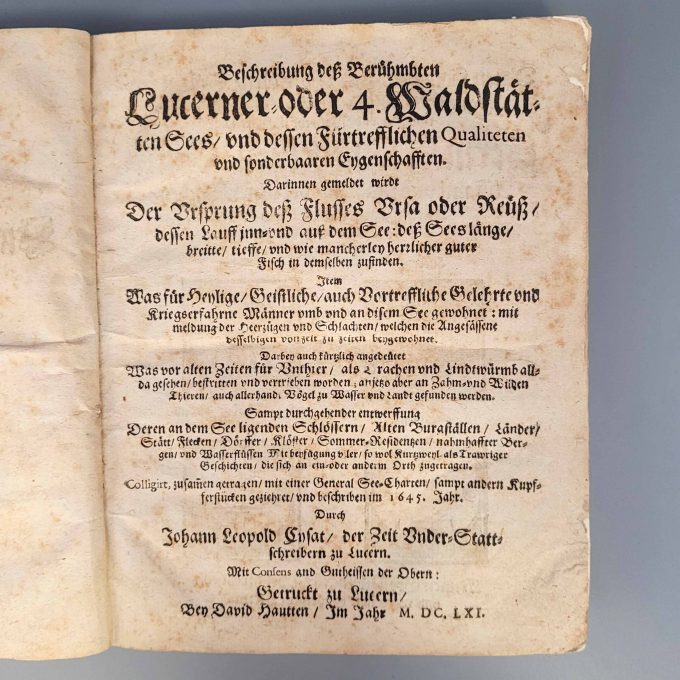 Beschreibung deß Berühmbten
Lucerner-oder 4. Waldstät-
ten Sees/ vnd dessen Fürtrefflichen Qualiteten
vnd sonderbaaren Eygenschafften.
Darinnen gemeldet wirdt
Der Vrsprung deß Flusses Vrsa oder Reüß/
dessen Lauff inn-vnd auß dem See: deß Sees länge/
breitte/ tieffe/ vnd wie mancherley herrlicher guter
Fisch in demselben zufinden.
Item
Was für Heylige/ Geistliche/ auch Vortreffliche Gelehrte vnd
Kriegserfahrne Männer vmb vnd an disem See gewohnet: mit
meldung der Heerzügen vnd Schlachten/ welchen die Angesässene
desselbigen von zeit zu zeiten beygewohnet.
Darbey auch kürtzlich angedeütet
Was vor alten Zeiten für Vnthier/ als Trachen vnd Lindtwürmb all-
da gesehen/ bestritten vnd vertrieben worden; anjetzo aber an Zahm-vnd Wilden
Thieren/ auch allerhand Vögel zu Wasser vnd Landt gefunden werden.
Sampt durchgehender entwerffung
Deren an dem See ligenden Schlössern/ Alten Burgställen/ Länder/
Stätt/ Flecken/ Dörffer/ Klöster/ Sommer-Residentzen/ nahmhaffter Ber-
gen/ vnd Wasserflüssen Mit beyfügung viler/ so wol Kurtzweyl. als Trawriger
Geschichten/ die sich an ein-oder anderm Orth zugetragen.
Colligirt, zusamen getragen/ mit einer General See-Charten/ sampt andern Kupf-
ferstucken gezieret/ vnd beschriben im 1645. Jahr.
Durch
Johann Leopold Cysat/ der Zeit Vnder-Statt-
schreibern zu Lucern.
Mit Consens and Gutheissen der Obern:
Getruckt zu Lucern/
Bey David Hautten/ Im Jahr M. DC. LXI.